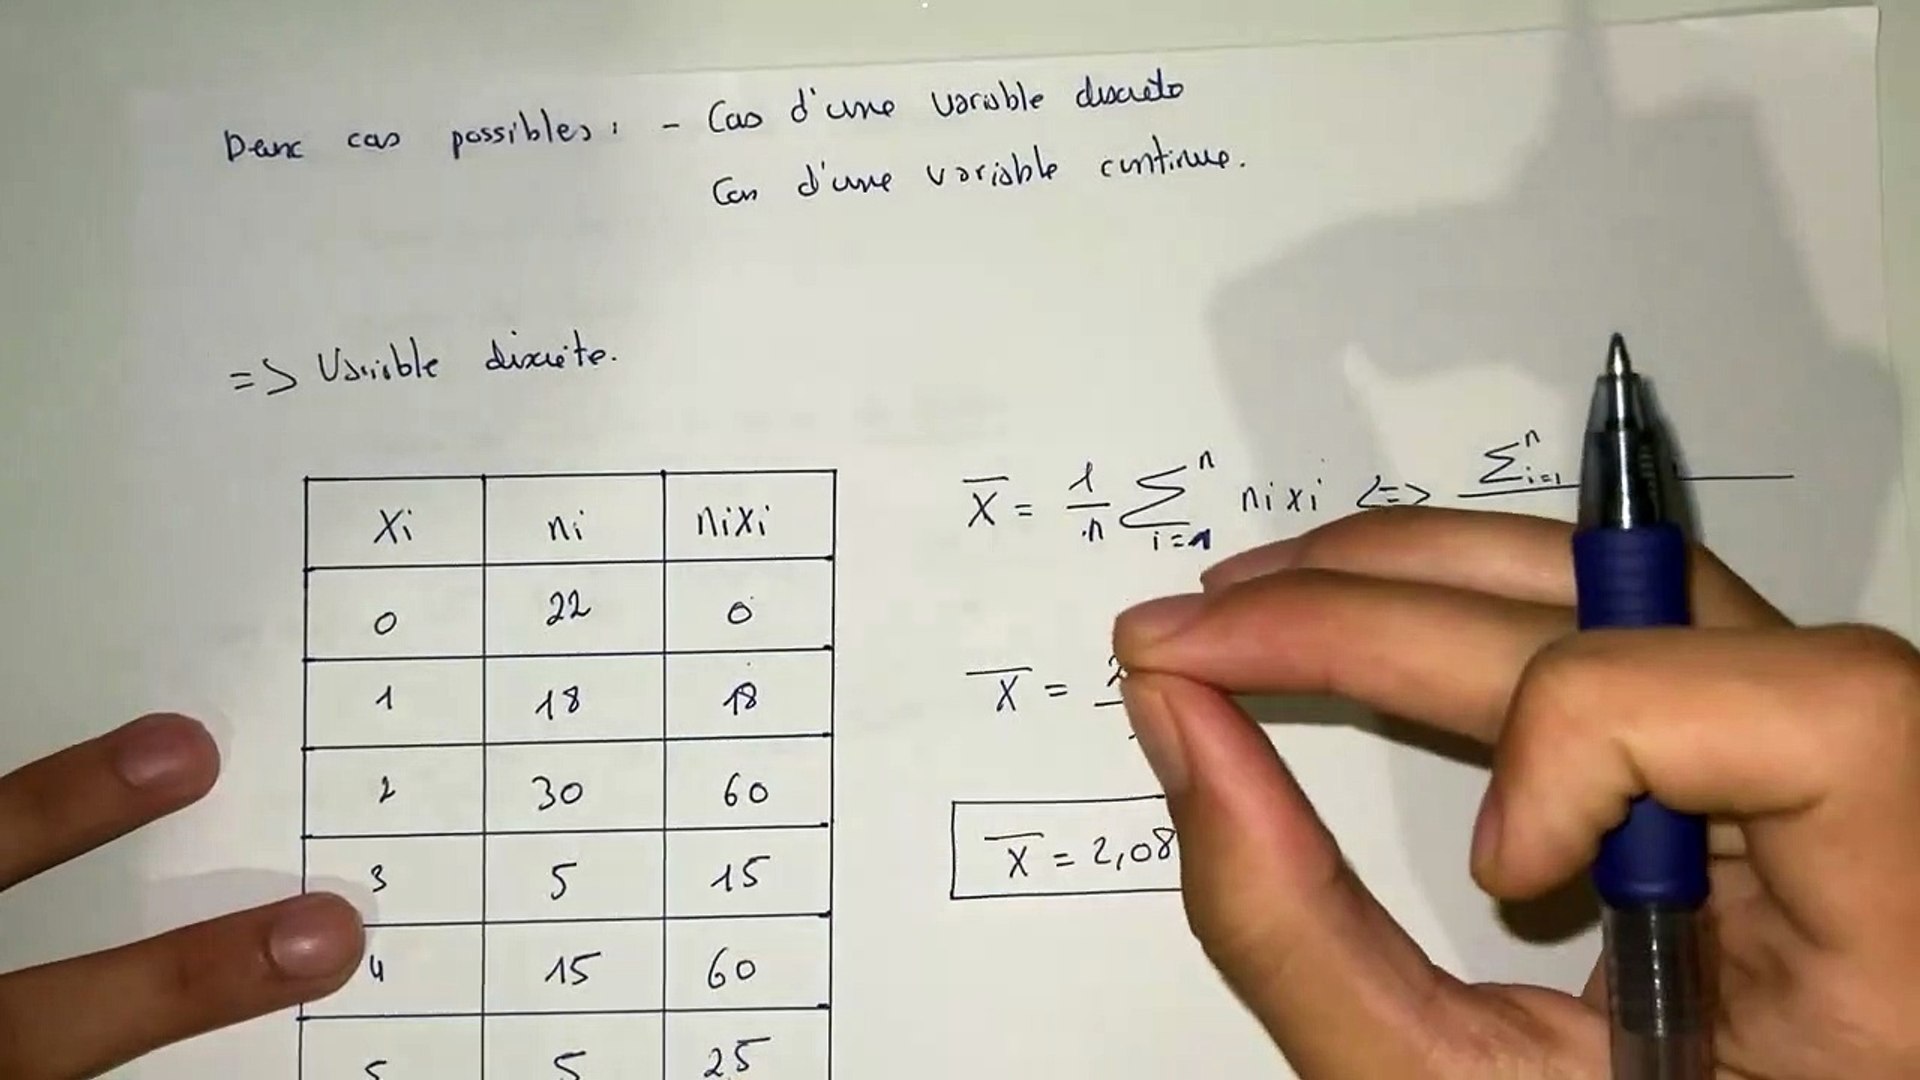 Deux cas possibles : - Cas d'une variable discrète
Cas d'une variable continue.
=> Variable discrète.
Xi ni niXi
0 22 0
1 18 18
2 30 60
3 5 15
4 15 60
5 5 25
X̅ = 1/n ∑ⁿ i=1 ni xi <=> ∑ⁿ i=1
X̅ =
X̅ = 2,08